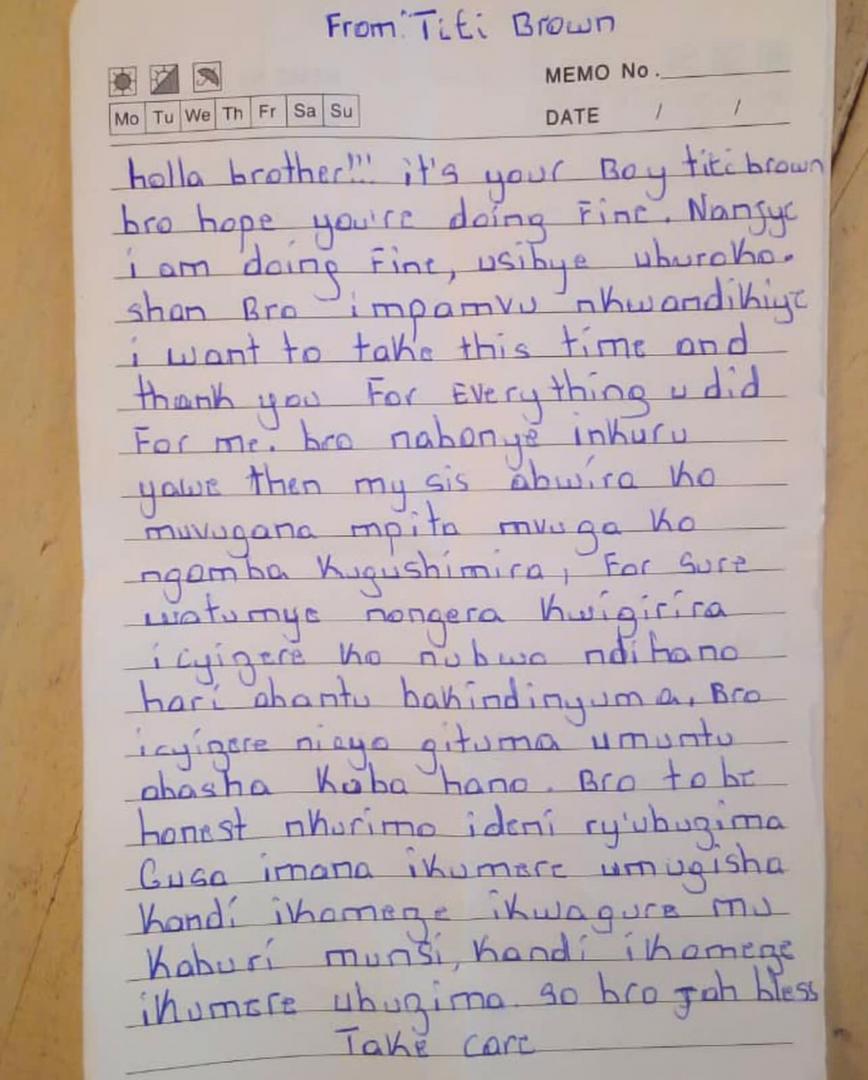 From: Titi Brown
MEMO No.
Mo Tu We Th Fr Sa Su
DATE / /
holla brother!!! it's your Boy titi brown
bro hope you're doing Fine. Nanjye
i am doing Fine, usibye uburoko.
shan Bro impamvu nkwandikiye
i want to take this time and
thank you For Everything u did
For me. bro nabonye inkuru
yawe then my sis abwira ko
muvugana mpita mvuga ko
ngomba Kugushimira, For Sure
watumye nongera Kwigirira
icyizere ko nubwo ndi hano
hari abantu bakindinyuma. Bro
icyizere nicyo gituma umuntu
abasha Kuba hano. Bro to be
honest nkurimo ideni ry'ubuzima
Gusa imana ikumere umugisha
Kandi ikomeze ikwagure mu
Kaburi munsi, Kandi ikomeze
ikumere ubuzima. so bro Jah bless
Take care